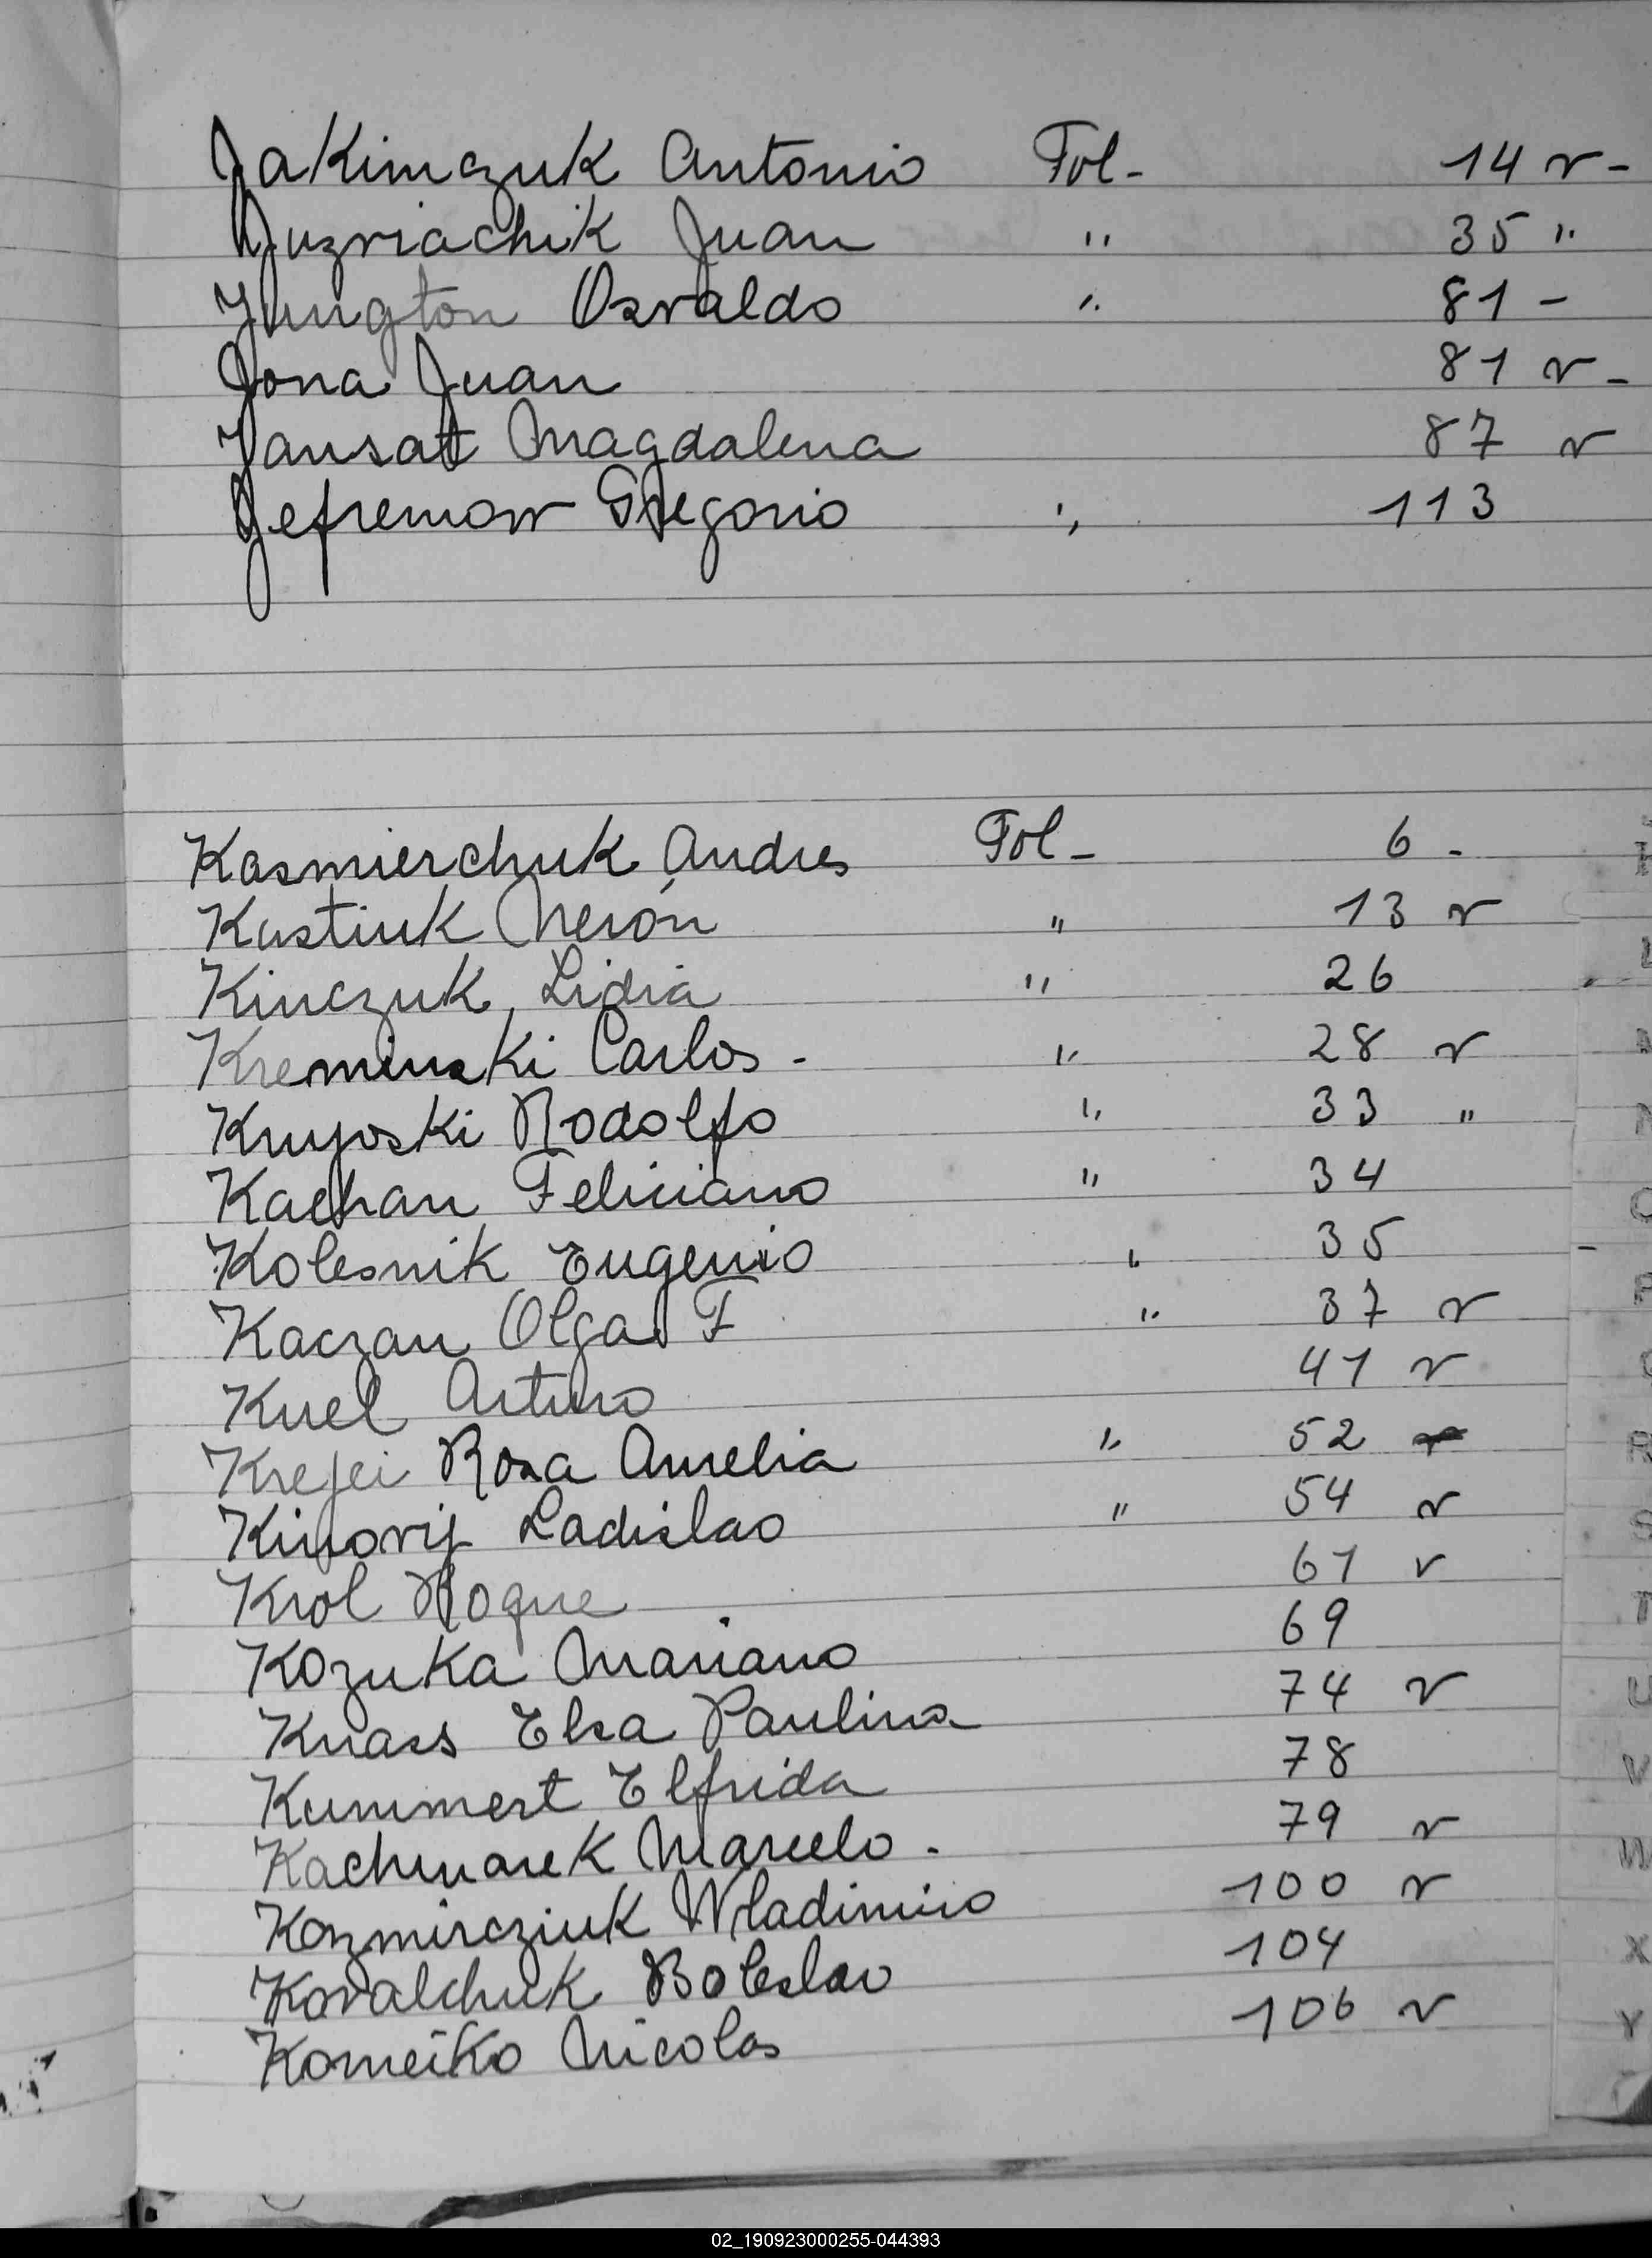 Jakimczuk Antonio Fol- 14 v-
Juzviachik Juan " 35 "
Yungton Osvaldo " 81 -
Jona Juan 81 v-
Jansat Magdalena 87 v
Jefremow Gregorio " 113
Kasmierchuk Andres Fol- 6 -
Kustiuk Nerón " 13 v
Kinczuk, Lidia " 26
Kreminski Carlos - " 28 v
Kruyoski Rodolfo " 33 "
Kachan Feliciano " 34
Kolesnik Eugenio " 35
Kaczan Olga F " 37 v
Kuel Arturo 41 v
Krejci Rosa Amelia " 52
Kinorij Ladislao " 54 v
Krol Roque 61 v
Kozuka Mariano 69
Knass Elsa Paulina 74 v
Kummert Elfrida 78
Kachmarek Marcelo - 79 v
Kozmircziuk Wladimiro 100 v
Kovalchuk Boleslao 104
Komeiko Nicolas 106 v
R
S
T
U
V
W
X
Y
02_190923000255-044393